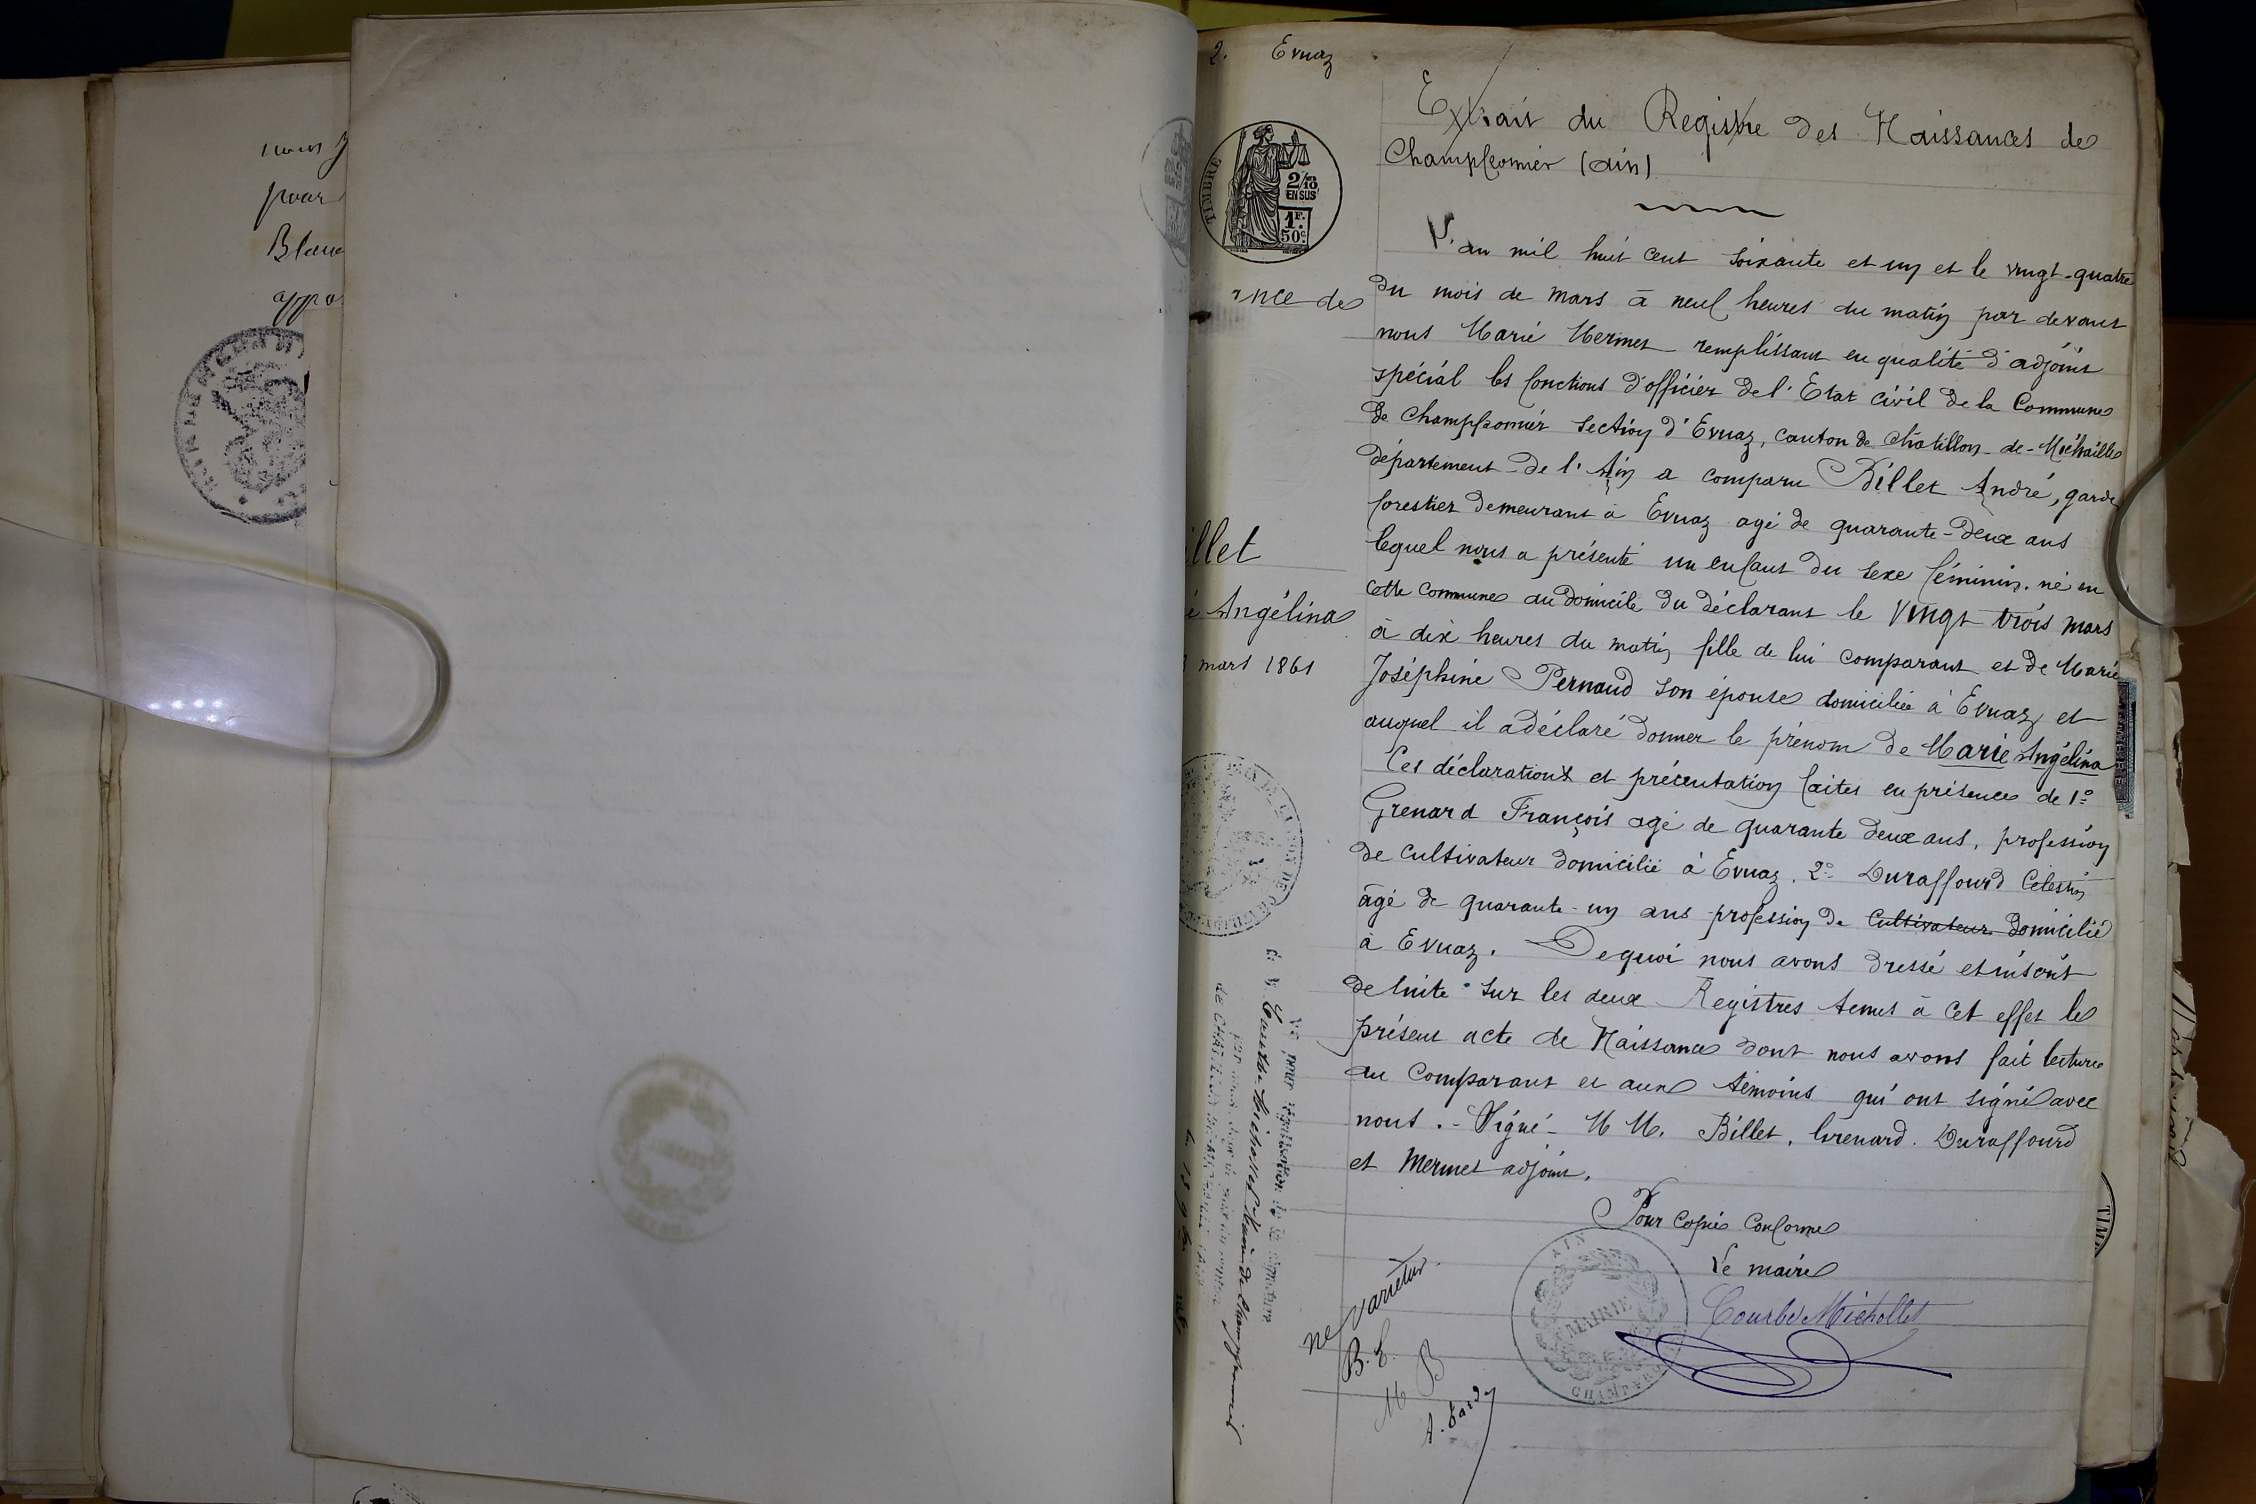 pour
appa
2. Evuaz
TIMBRE
2/10
EN SUS
1F.
50c.
nce de
illet
Angélina
mars 1861
Extrait du Registre des Naissances de
Champfromier (ain)
L'an mil huit cent soixante et un et le vingt-quatre
du mois de mars à neuf heures du matin par devant
nous Marie Mermet remplissant en qualité d'adjoint
spécial les fonctions d'officier de l'Etat civil de la Commune
de Champfromier section d'Evuaz, canton de Châtillon-de-Michaille
département de l'Ain a comparu Billet André, garde
forestier demeurant à Evuaz agé de quarante-deux ans
lequel nous a présenté un enfant du sexe féminin né en
cette commune au domicile du déclarant le vingt trois mars
à dix heures du matin fille de lui comparant et de Marie
Joséphine Pernoud son épouse domiciliée à Evuaz et
auquel il a déclaré donner le prénom de Marie Angélina
Ces déclarations et présentation faites en présence de 1°
Grenard François agé de quarante deux ans, profession
de cultivateur domicilié à Evuaz. 2° Duraffourd Célestin
âgé de quarante-un ans profession de cultivateur domicilié
à Evuaz. De quoi nous avons dressé et inscrit
de suite sur les deux Registres tenus à cet effet le
présent acte de Naissance dont nous avons fait lecture
au comparant et aux témoins qui ont signé avec
nous. - Signé - M M. Billet, Grenard. Duraffourd
et Mermet adjoint.
Pour copie conforme
Le maire
Courbe Michollet
AIN
MAIRIE
ne varietur
B. E.
M B
Vu pour légalisation de la signature
de M. Courbe Michollet Maire de Champfromier
TIMB